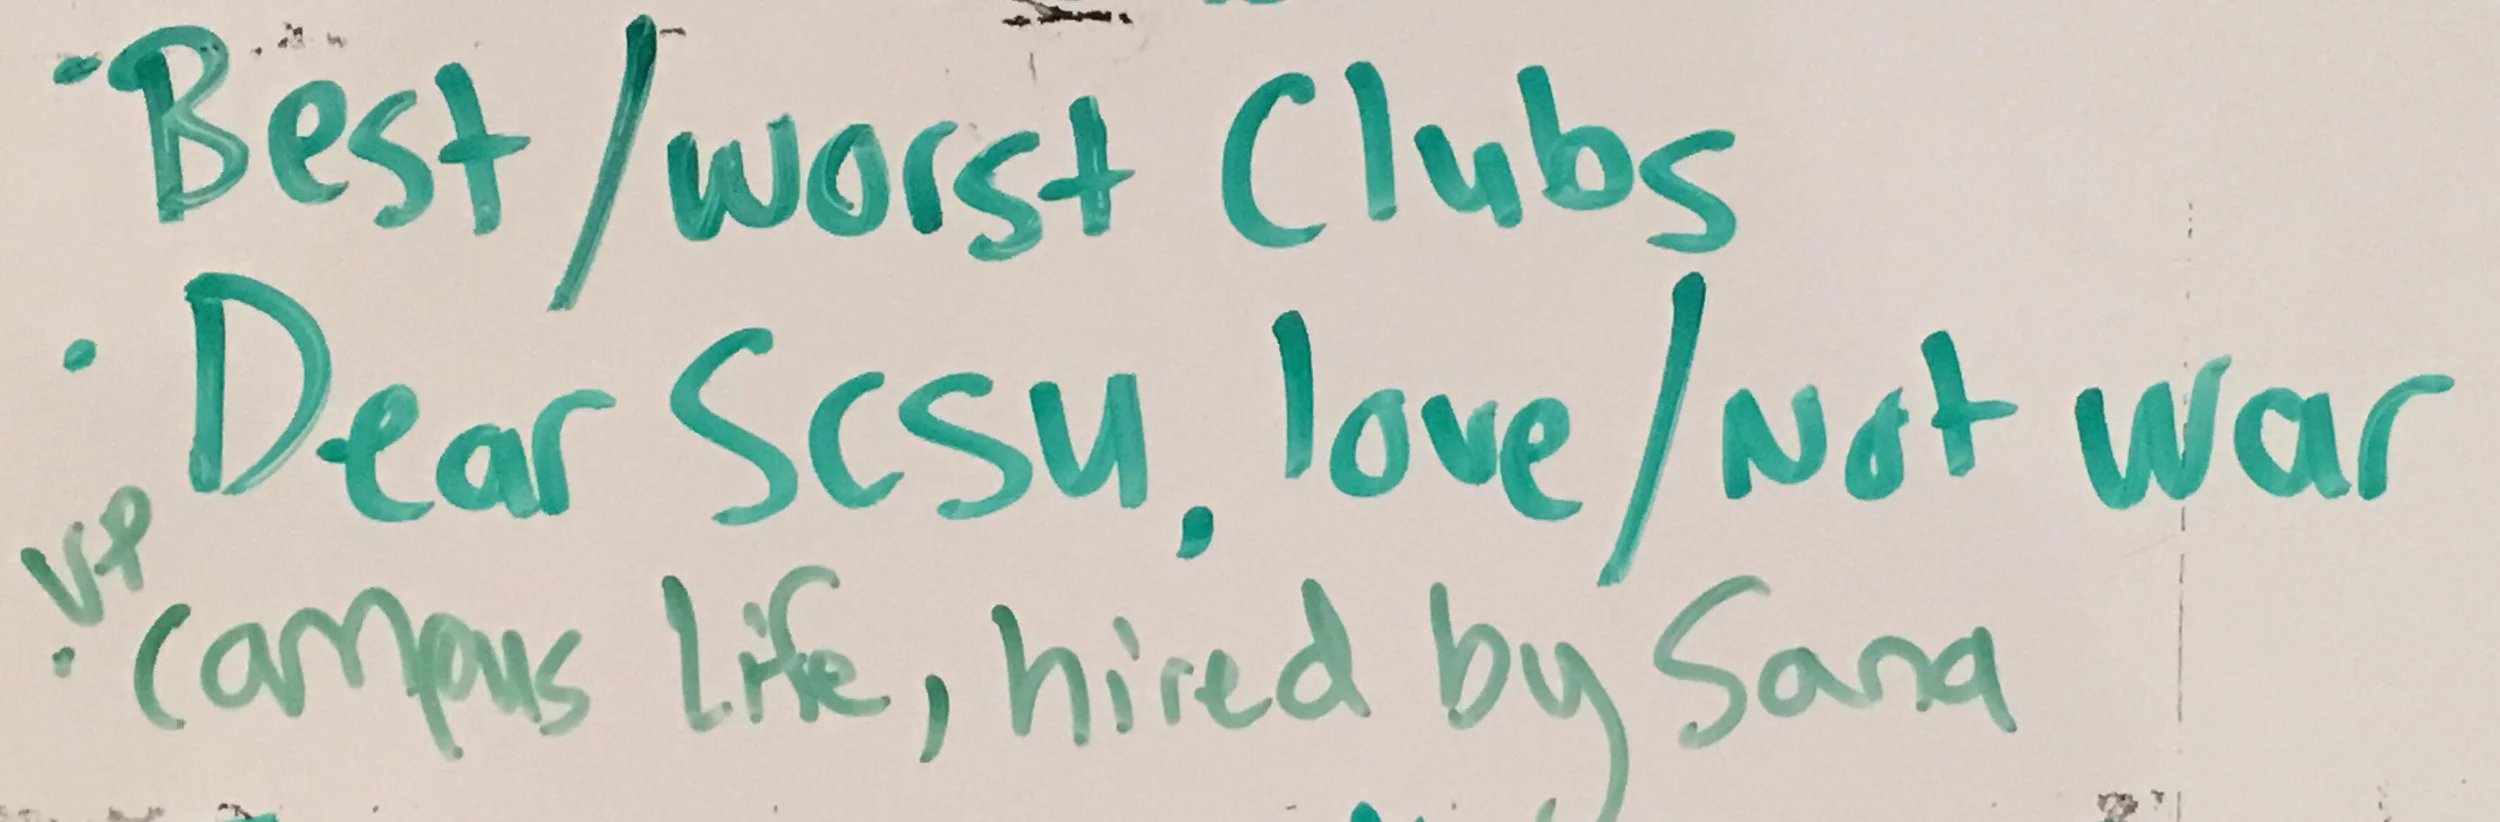 · Best/worst Clubs
· Dear Scsu, love/Not war
VP
· Campus Life, hired by Sana